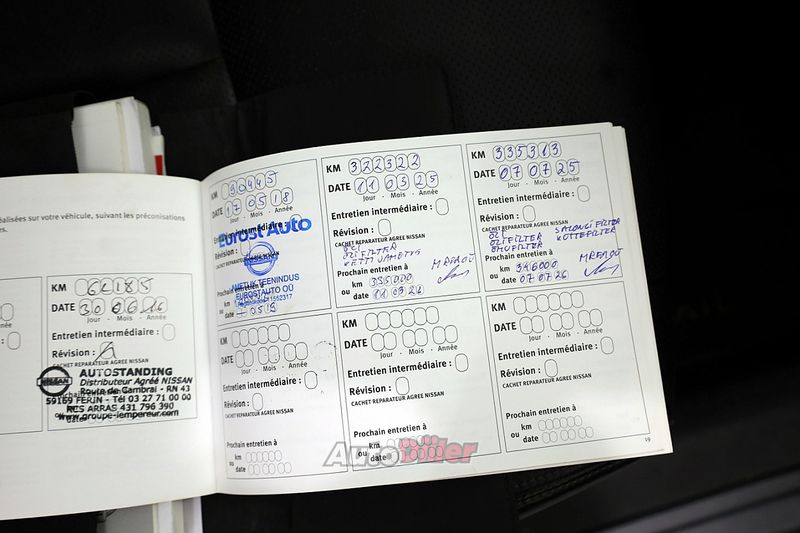 éalisées sur votre véhicule, suivant les préconisations
es.
née
KM 62185
DATE 30 06 16
Jour - Mois - Année
Entretien intermédiaire :
Révision :
CACHET REPARATEUR AGREE NISSAN
AUTOSTANDING
Distributeur Agréé NISSAN
Route de Cambrai - RN 43
59169 FERIN - Tél 03 27 71 00 00
RCS ARRAS 431 796 390
www.groupe-lempereur.com
NISSAN
KM
DATE 17 05 18
Jour - Mois - Année
Entretien intermédiaire :
Révision :
CACHET REPARATEUR AGREE NISSAN
Eurost Auto
NISSAN
AMETLIK TEENINDUS
EUROSTAUTO OÜ
Prochain entretien à
ou
date
KM 322322
DATE 11 03 25
Jour - Mois - Année
Entretien intermédiaire :
Révision :
CACHET REPARATEUR AGREE NISSAN
ÕLI
ÕLIFILTER
Prochain entretien à
km 335000
ou
date 11 03 26
KM 335313
DATE 07 07 25
Jour - Mois - Année
Entretien intermédiaire :
Révision :
CACHET REPARATEUR AGREE NISSAN
ÕLI SALONGIFILTER
ÕLIFILTER KÜTTEFILTER
ÕHUFILTER
Prochain entretien à
km 346000
ou
date 07 07 26
KM
DATE
Jour - Mois - Année
Entretien intermédiaire :
Révision :
CACHET REPARATEUR AGREE NISSAN
Prochain entretien à
km
ou
date
KM
DATE
Jour - Mois - Année
Entretien intermédiaire :
Révision :
CACHET REPARATEUR AGREE NISSAN
Prochain entretien à
km
ou
date
KM
DATE
Jour - Mois - Année
Entretien intermédiaire :
Révision :
CACHET REPARATEUR AGREE NISSAN
Prochain entretien à
km
ou
date
19
Autodiiler